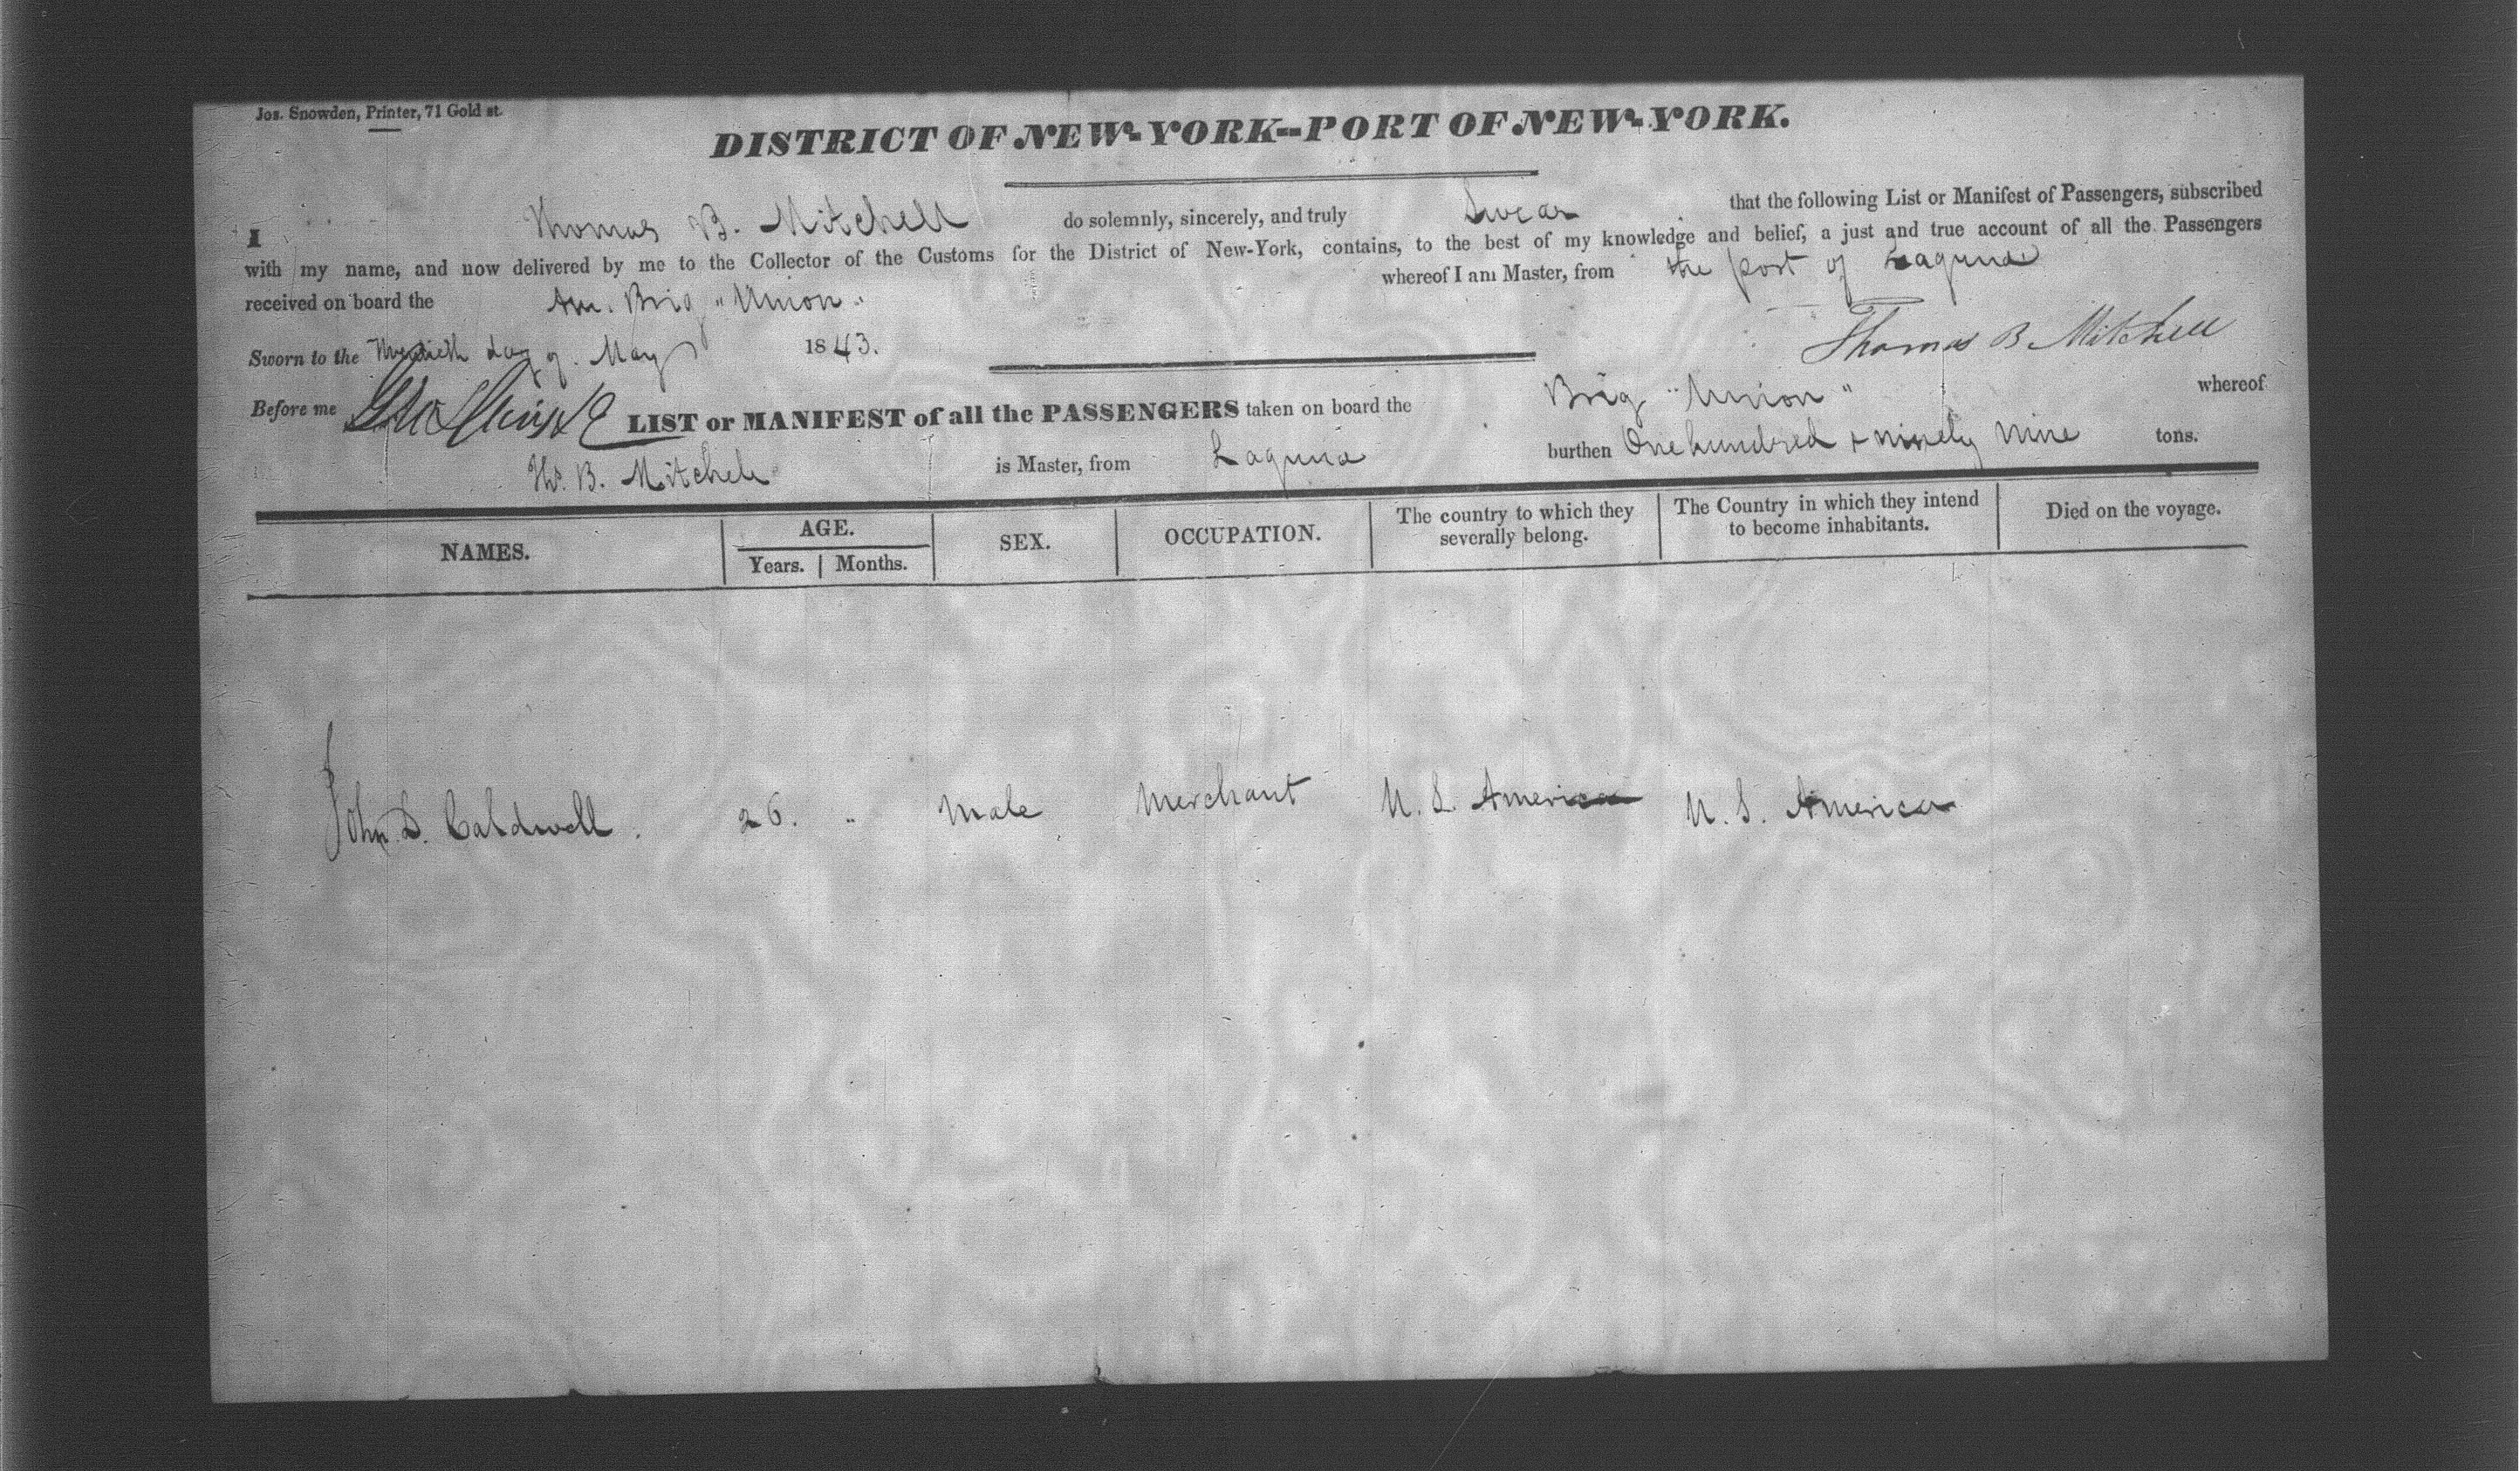 Jos. Snowden, Printer, 71 Gold st.
DISTRICT OF NEW-YORK--PORT OF NEW-YORK.
I Thomas B. Mitchell do solemnly, sincerely, and truly Swear that the following List or Manifest of Passengers, subscribed
with my name, and now delivered by me to the Collector of the Customs for the District of New-York, contains, to the best of my knowledge and belief, a just and true account of all the Passengers
received on board the Am. Brig "Union" whereof I am Master, from the port of Laguna
Sworn to the day of May 1843. Thomas B Mitchell
Before me
LIST or MANIFEST of all the PASSENGERS taken on board the Brig "Union" whereof
Ths. B. Mitchell is Master, from Laguna burthen One hundred & ninety nine tons.
NAMES. AGE. Years. Months. SEX. OCCUPATION. The country to which they severally belong. The Country in which they intend to become inhabitants. Died on the voyage.
John Caldwell. 26. " Male Merchant U. S. America U. S. America